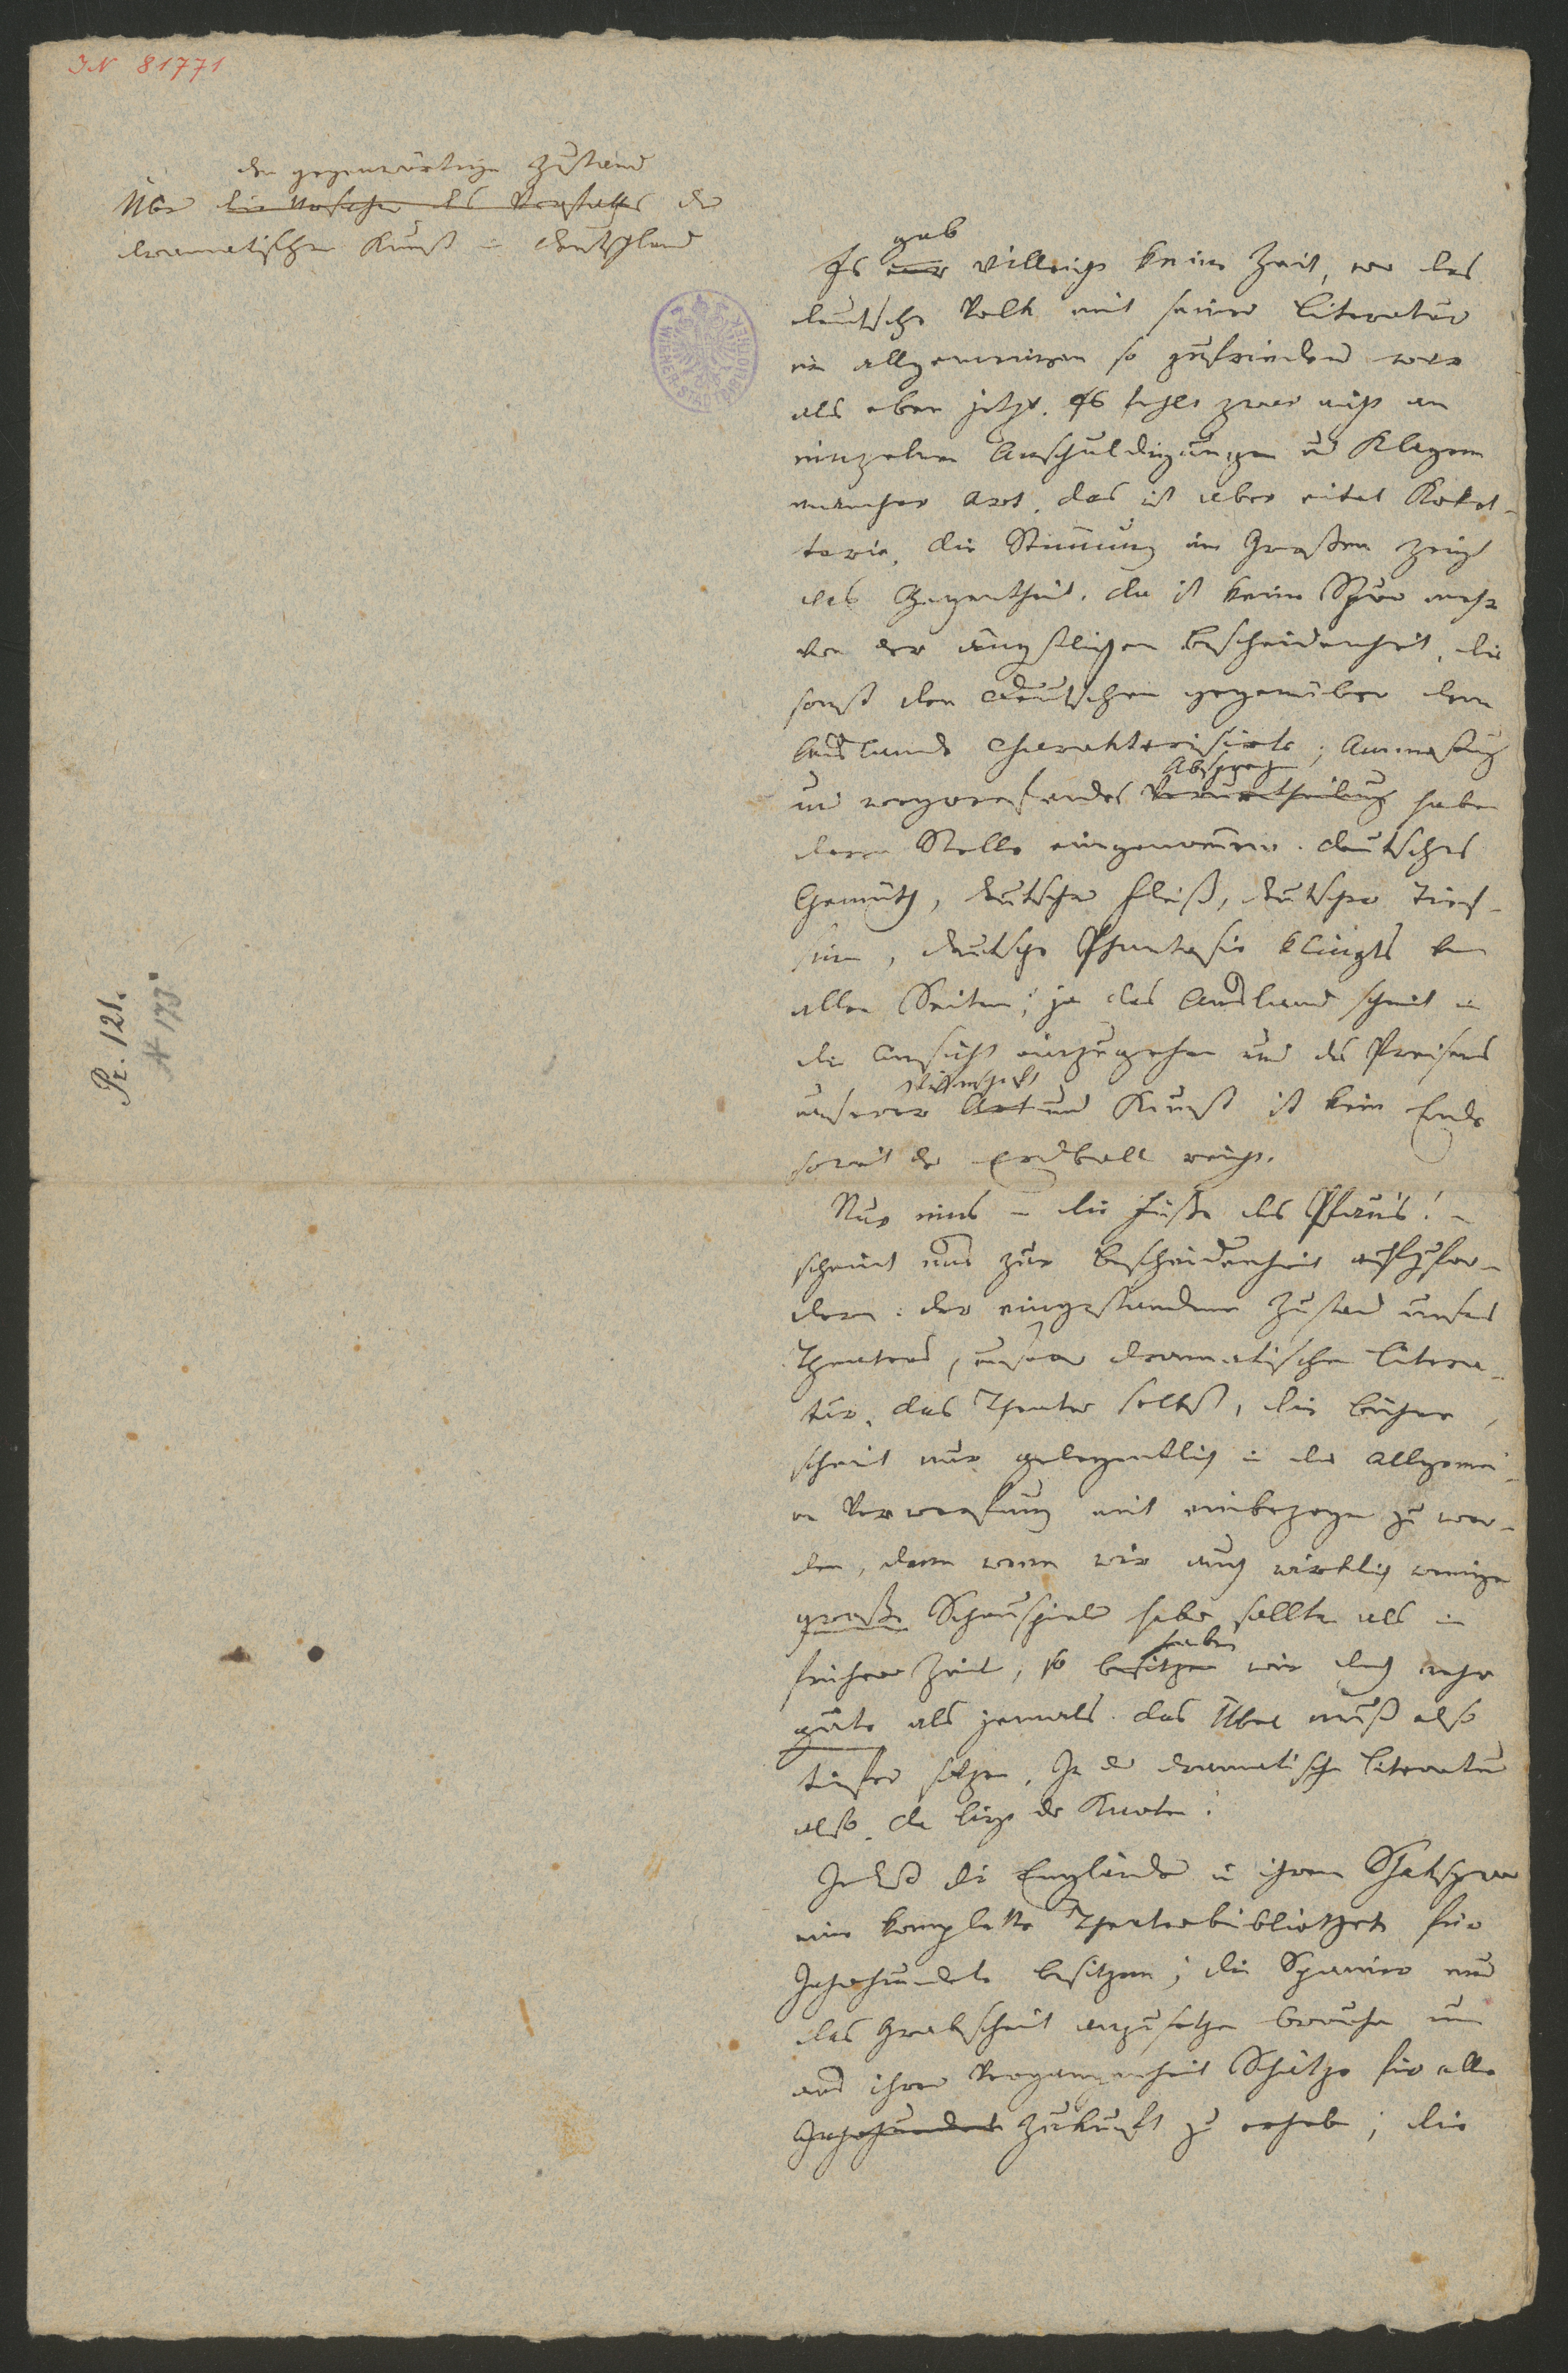 IN 81771
den gegenwärtigen Zustand
Über die Ursachen des Verfalles der
dramatischen Kunst in Deutschland
WIENER STADTBIBLIOTHEK
Pr. 121.
N 173
gab
Es war vielleicht keine Zeit, wo das
deutsche Volk mit seiner Literatur
im allgemeinen so zufrieden war
als eben jetzt. Es fehlt zwar nicht an
einzelnen Anschuldigungen und Klagen
mancher Art, das ist aber eitel Koket-
terie, die Stimmung im Großen zeigt
das Gegentheil. Da ist keine Spur mehr
von der ängstlichen Bescheidenheit, die
sonst den Deutschen gegenüber dem
Auslande charakterisirte; Anmaßung
Absprechen
und wegwerfendes Verurtheilung haben
deren Stelle eingenommen. Deutsches
Gemüth, deutscher Fleiß, deutscher Tief-
sinn, deutsche Phantasie klingts von
allen Seiten; ja das Ausland scheint in
die Ansicht einzugehen und des Preisens
Wissenschaft
unserer Art und Kunst ist kein Ende
soweit der Erdball reicht.
Nur eines – die Füße des Pfau's! –
scheint uns zur Bescheidenheit aufzufor-
dern: der eingestandene Zustand unsers
Theaters, unserer dramatischen Litera-
tur. Das Theater selbst, die Bühne,
scheint nur gelegentlich in die allgemei-
ne Verwerfung mit einbezogen zu wer-
den, denn wenn wir auch wirklich weniger
große Schauspieler haben sollten als in
haben
früherer Zeit, so besitzen wir doch mehr
gute als jemals. Das Übel muß also
tiefer sitzen. In der dramatischen Literatur
also, da liegt der Knoten!
Indeß die Engländer in ihrem Shakspear
eine komplette Theaterbibliothek für
Jahrhunderte besitzen; die Spanier nur
das Grabscheit anzusetzen brauchen um
aus ihrer Vergangenheit Schätze für alle
Jahrhunderte Zukunft zu erheben; die